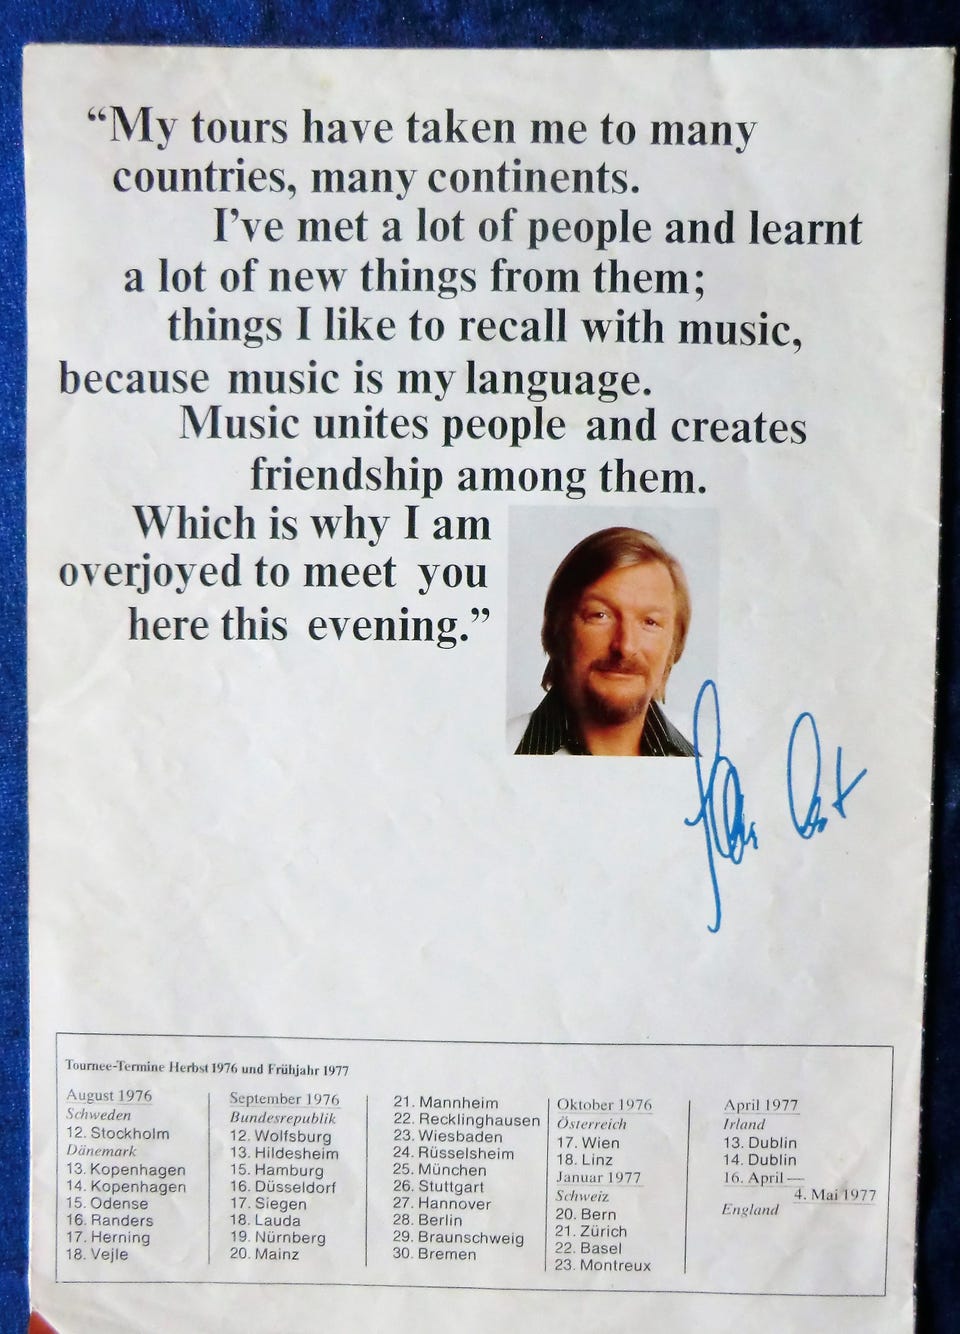 “My tours have taken me to many
countries, many continents.
I’ve met a lot of people and learnt
a lot of new things from them;
things I like to recall with music,
because music is my language.
Music unites people and creates
friendship among them.
Which is why I am
overjoyed to meet you
here this evening.”
Tournee-Termine Herbst 1976 und Frühjahr 1977
August 1976
Schweden
12. Stockholm
Dänemark
13. Kopenhagen
14. Kopenhagen
15. Odense
16. Randers
17. Herning
18. Vejle
September 1976
Bundesrepublik
12. Wolfsburg
13. Hildesheim
15. Hamburg
16. Düsseldorf
17. Siegen
18. Lauda
19. Nürnberg
20. Mainz
21. Mannheim
22. Recklinghausen
23. Wiesbaden
24. Rüsselsheim
25. München
26. Stuttgart
27. Hannover
28. Berlin
29. Braunschweig
30. Bremen
Oktober 1976
Österreich
17. Wien
18. Linz
Januar 1977
Schweiz
20. Bern
21. Zürich
22. Basel
23. Montreux
April 1977
Irland
13. Dublin
14. Dublin
16. April —
4. Mai 1977
England